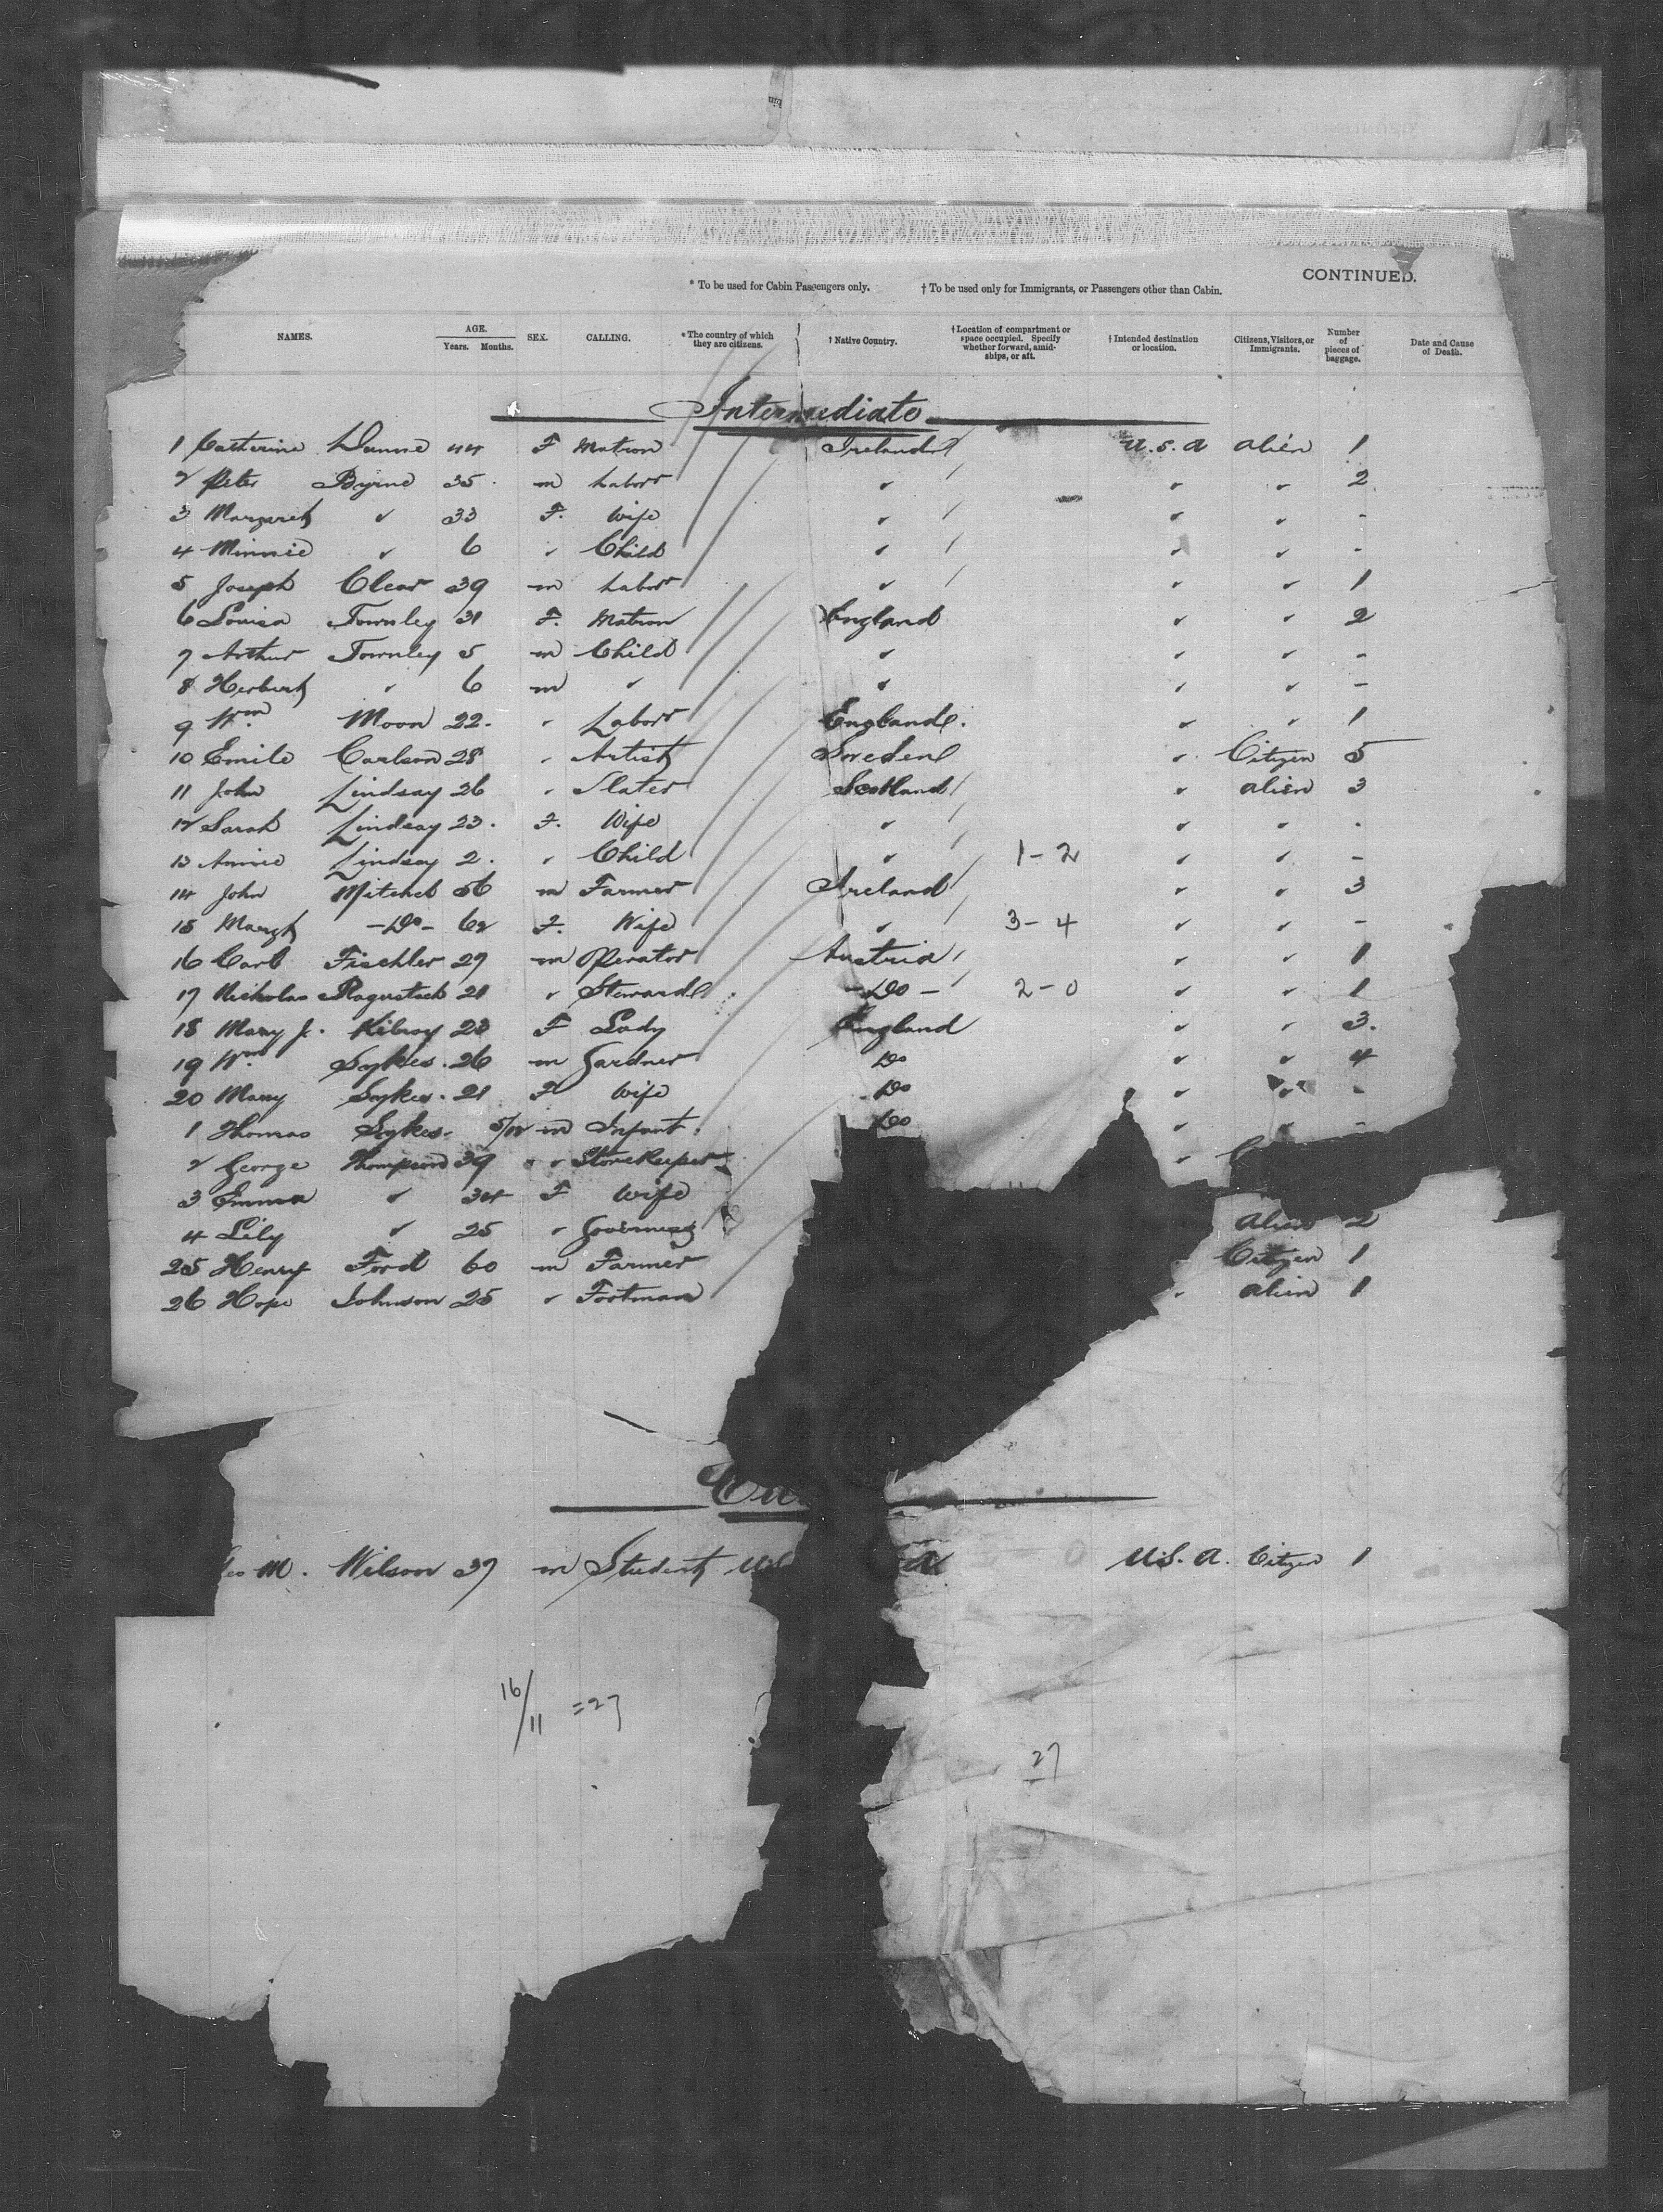 CONTINUED.
* To be used for Cabin Passengers only. † To be used only for Immigrants, or Passengers other than Cabin.
NAMES. AGE. Years. Months. SEX. CALLING. * The country of which they are citizens. † Native Country. † Location of compartment or space occupied. Specify whether forward, amidships, or aft. † Intended destination or location. Citizens, Visitors, or Immigrants. Number of pieces of baggage. Date and Cause of Death.
Intermediate
1 Catherine Dunne 44 F Matron Ireland U.S.A alien 1
2 Peter Byrne 35 m Labor " " " 2
3 Margaret " 33 F. Wife " " " -
4 Minnie " 6 " Child " " " -
5 Joseph Clear 39 m Labor " " " 1
6 Louisa Townley 31 F. Matron England " " 2
7 Arthur Townley 5 m Child " " " -
8 Herbert " 6 m " " " " -
9 Wm Moon 22. " Labor England. " " 1
10 Emile Carlson 28 " Artist Sweden " Citizen 5
11 John Lindsay 26 " Slater Scotland " alien 3
12 Sarah Lindsay 23. F. Wife " " " -
13 Annie Lindsay 2. " Child " 1-2 " " -
14 John Mitchel 56 m Farmer Ireland " " 3
15 Margt -Do- 62 F. Wife " 3-4 " " -
16 Carl Fischler 27 m Operator Austria " " 1
17 Nicholas 21 " Steward -Do- 2-0 " " 1
18 Mary J. Kilroy 23 F Lady England " " 3.
19 Wm Sykes. 26 m Gardner Do " " 4
20 Mary Sykes. 21 F Wife Do " " -
1 Thomas Sykes. 5/12 m Infant. Do " " -
2 George Thompson 39 " Storekeeper "
3 Emma " 34 F Wife
4 Lily " 25 " Governess alien 2
25 Henry Ford 60 m Farmer Citizen 1
26 Hope Johnson 25 " Footman " alien 1
M. Wilson 37 m Student U.S.A. Citizen 1
16/11 =27
27